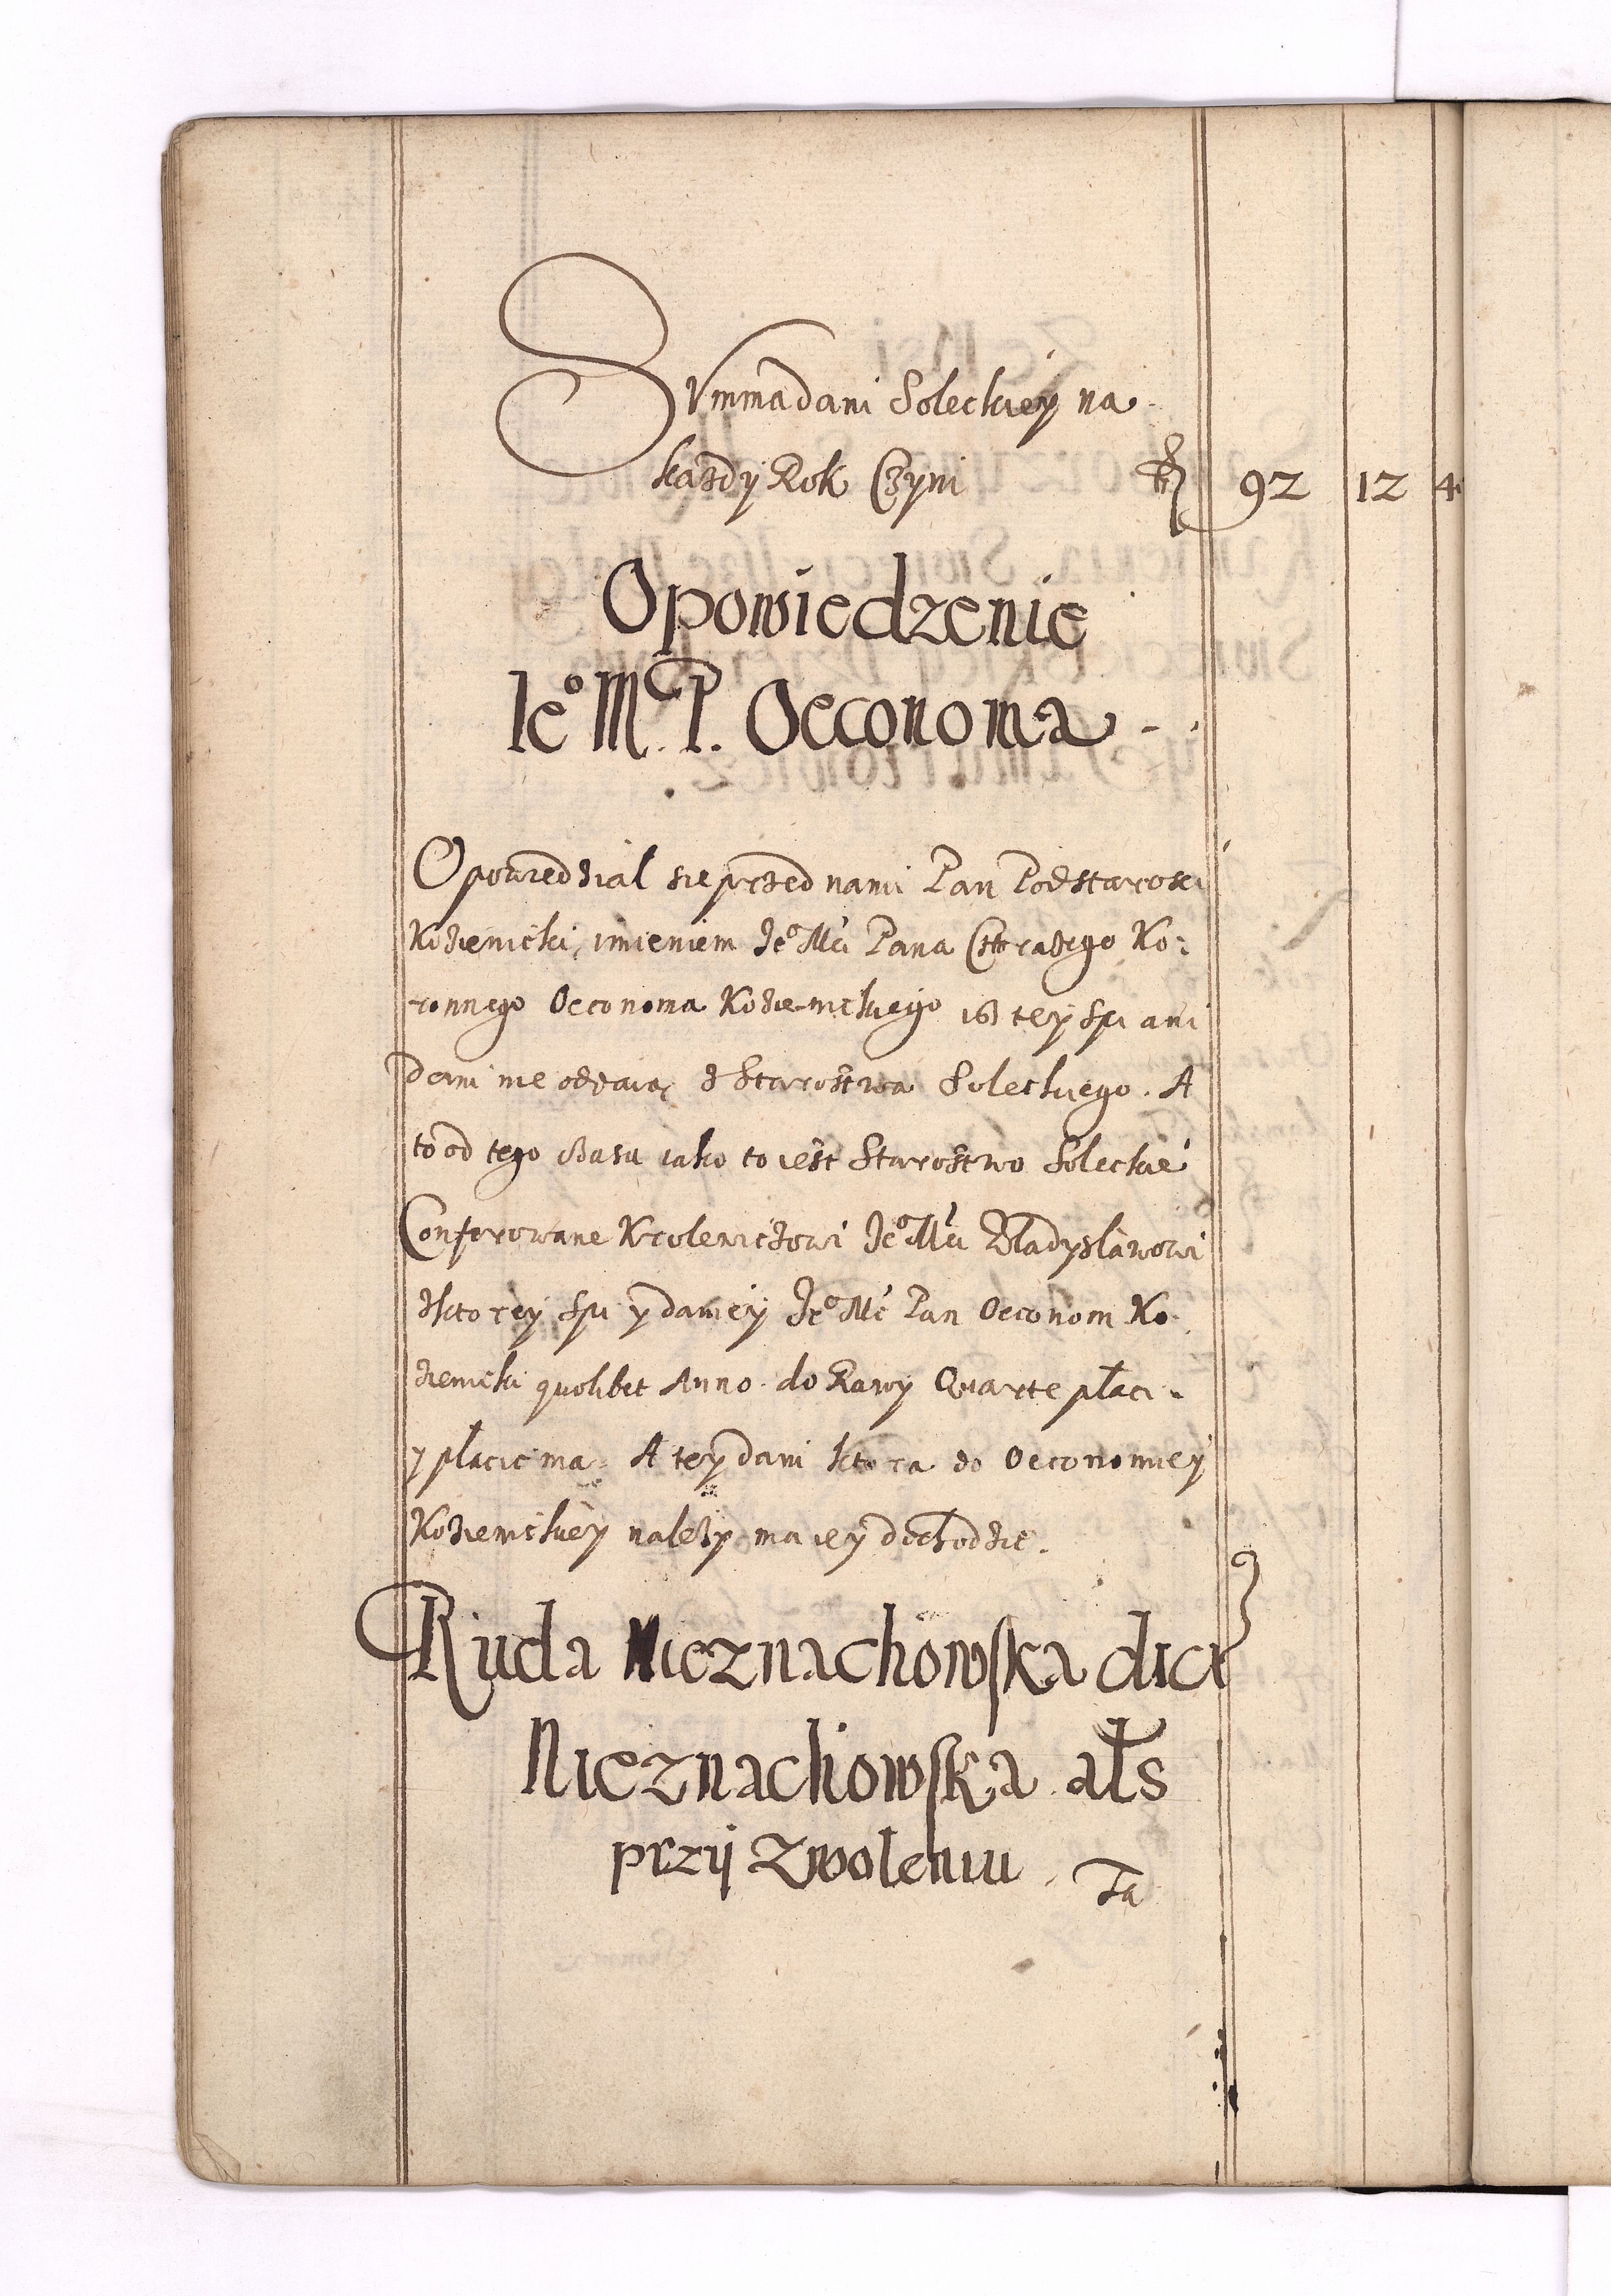 Summa dani Soleckiey na
każdy Rok Czyni fl 92 12 4
Opowiedzenie
Ie° Mci P. Oeconoma
Opowiedzial sie przed nami Pan Podstarosci
Kozienicki, imieniem Je° Mci Pana Strażego Ko:
ronnego Oeconoma Kozienickiego iż tey Spi ani
dani nie oddaią z Starostwa Soleckiego. A
to od tego czasu iako to iest Starostwo Soleckie
Conferowane Krolewiczowi Je° Mci Władysławowi
z ktorey Spi y daniey Je° Mc Pan Oeconom Ko
zienicki quolibet Anno do Rawy Quarte płaci
y płacic ma. A tey dani ktora do Oeconomiey
Kozienickiey należy ma iey dochodzic.
Ruda Nieznachowska dicta
Nieznachowska als
przy Zwoleniu Ta